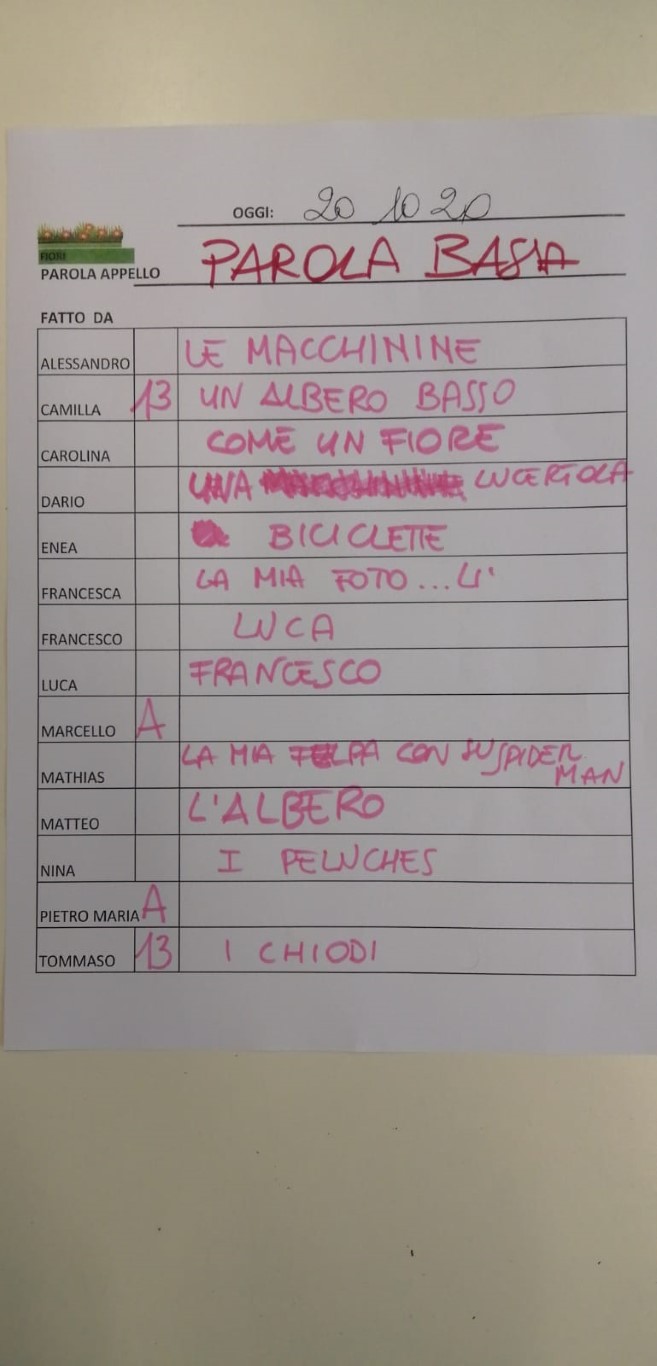 OGGI: 20 10 20
FIORI
PAROLA APPELLO PAROLA BASSA
FATTO DA
ALESSANDRO LE MACCHININE
CAMILLA 13 UN ALBERO BASSO
CAROLINA COME UN FIORE
DARIO UNA LUCERTOLA
ENEA BICICLETTE
FRANCESCA LA MIA FOTO...LI'
FRANCESCO LUCA
LUCA FRANCESCO
MARCELLO A
MATHIAS LA MIA FELPA CON SU SPIDER
MAN
MATTEO L'ALBERO
NINA I PELUCHES
PIETRO MARIA A
TOMMASO 13 I CHIODI